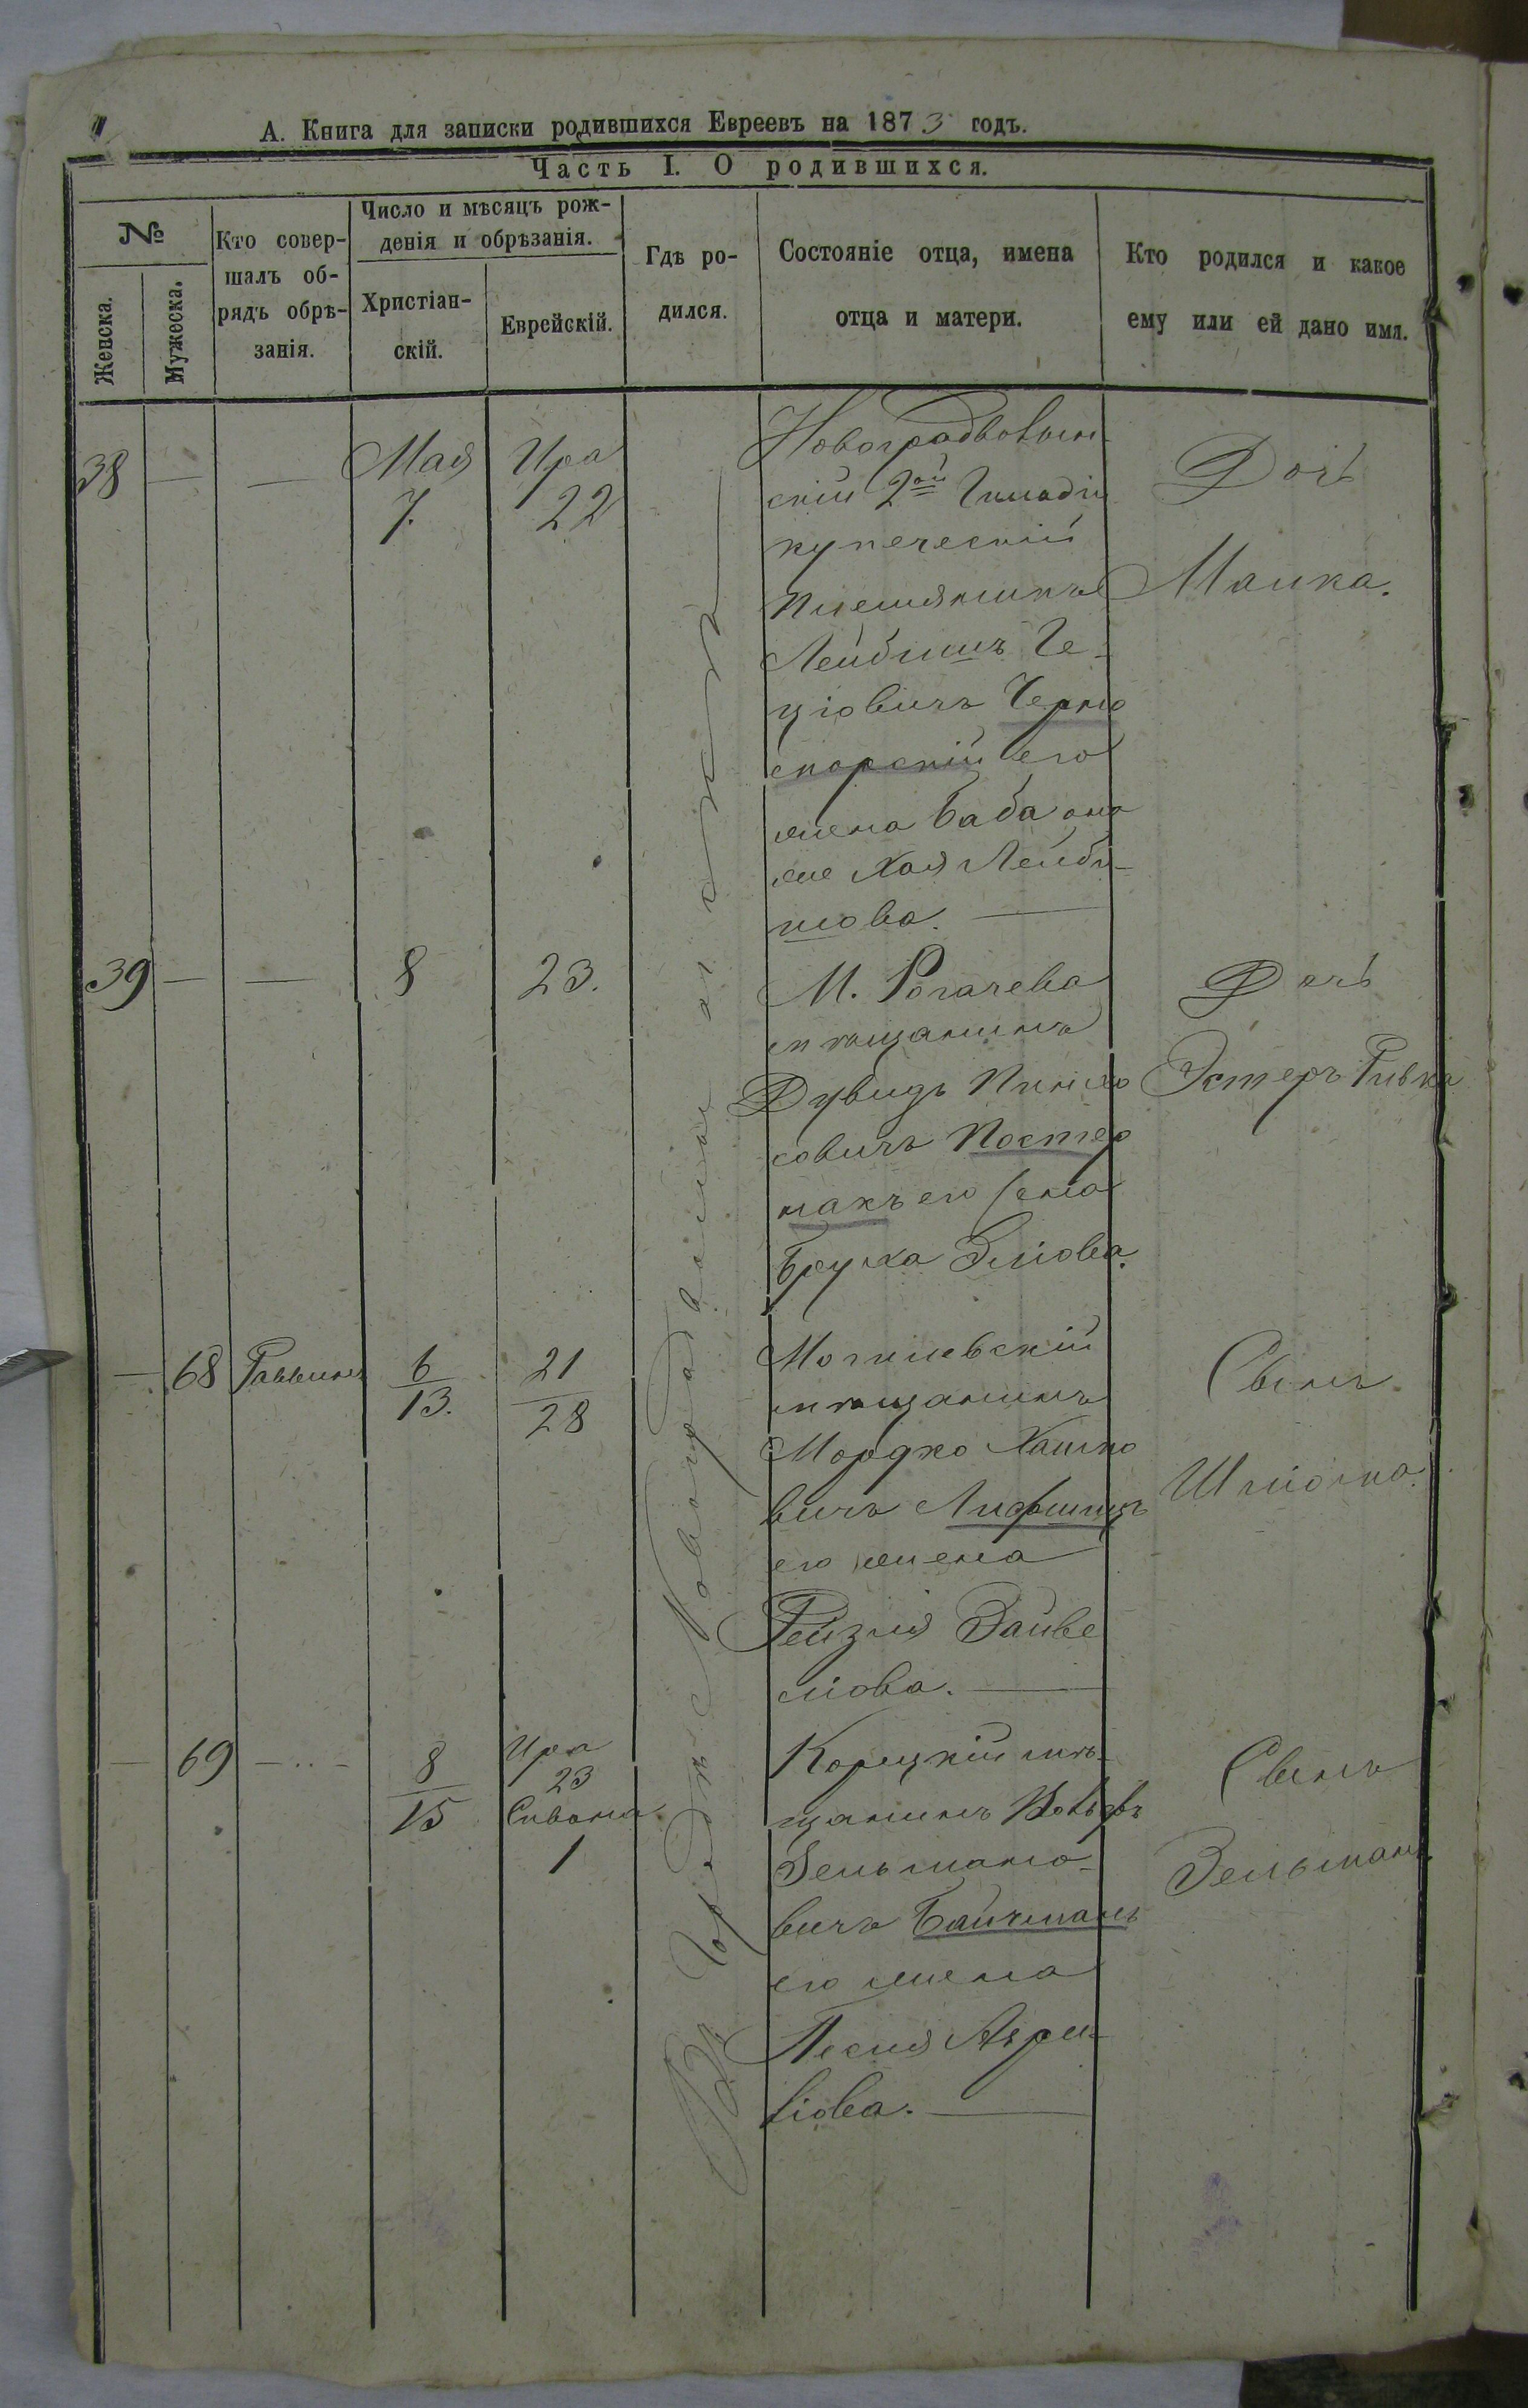 А. Книга для записки родившихся Евреевъ на 1873 годъ.
Часть I. О родившихся.
№
Женска.
Мужеска.
Кто совер-
шалъ об-
рядъ обрѣ-
занія.
Число и мѣсяцъ рож-
денія и обрѣзанія.
Христіан-
скій.
Еврейскій.
Гдѣ ро-
дился.
Состояніе отца, имена
отца и матери.
Кто родился и какое
ему или ей дано имя.
Въ Городѣ Новоградволынскѣ
38 — — Мая Ира
7. 22
Новоградволын-
скій 2ой Гильдіи
купеческій
племянникъ
Лейбишъ Ге-
ціовичъ Черно
скорскій его
жена Баба она
же Хая Лейби-
шова. —
Дочь
Малка.
39 — — 8 23.
М. Рогачева
мѣщанинъ
Дувидъ Пинхо
совичъ Постер
накъ его жена
Бруха Эліова.
Дочь
Эстеръ Ривка
— 68 Раввинъ 6 21
13. 28
Могилевскій
мѣщанинъ
Мордко Хаимо
вичъ Лифшицъ
его жена
Рейзля Зайве
ліова. —
Сынъ
Шліома.
— 69 — .. — 8 Ира
23
15 Сивона
1
Корецкій мѣ-
щанинъ Вольфъ
Зельмано-
вичъ Байчманъ
его жена
Песия
ліова. —
Сынъ
Зельманъ.